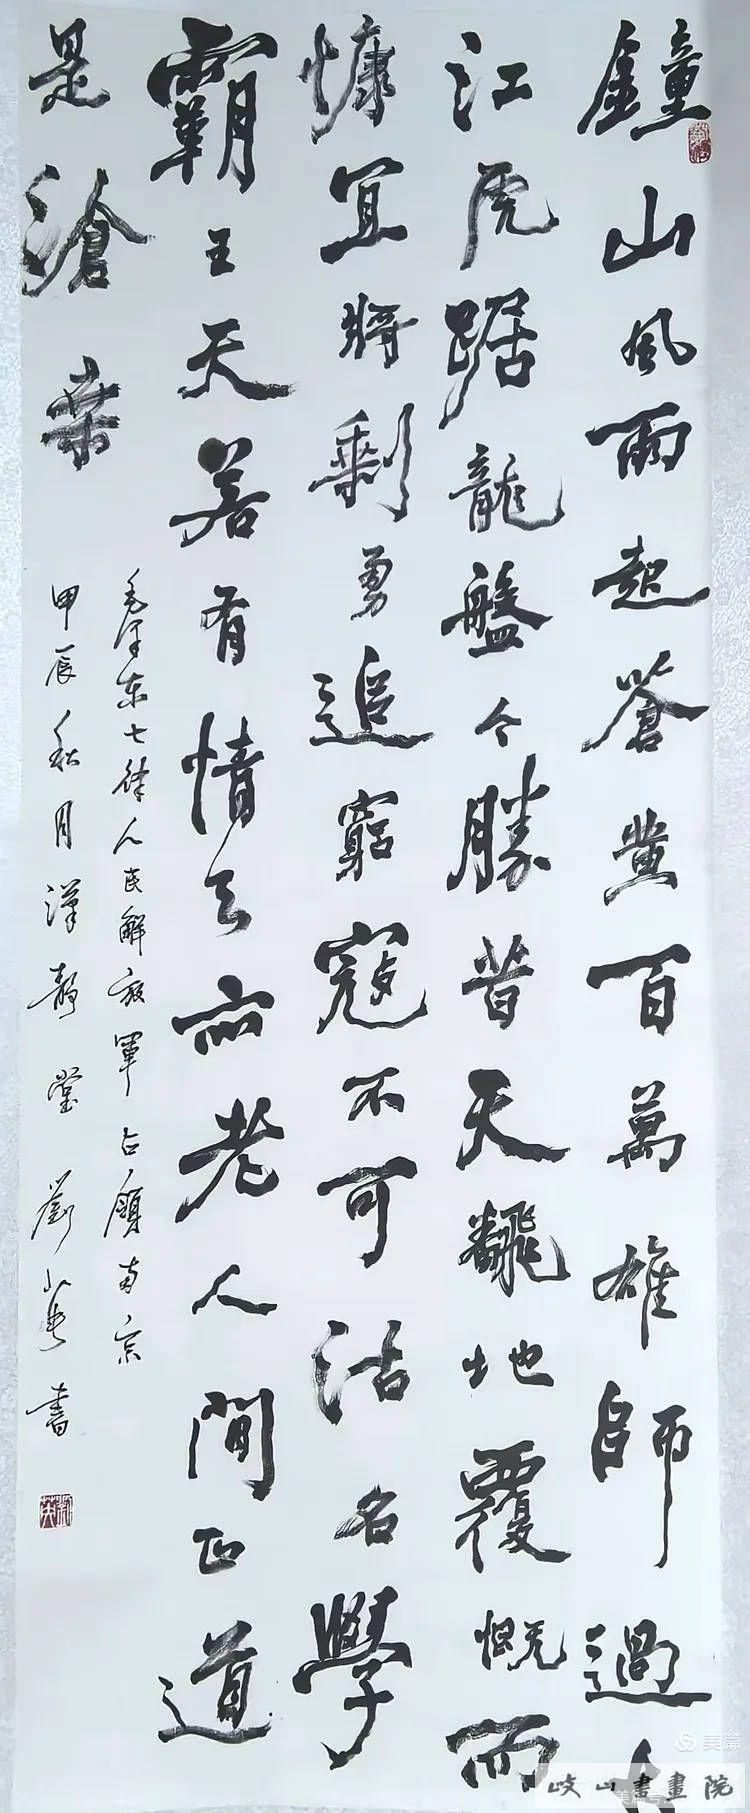 鐘山風雨起蒼黃百萬雄師過大
江虎踞龍盤今勝昔天飜地覆慨而
慷宜將剩勇追窮寇不可沽名學
霸王天若有情天亦老人間正道
是滄桑
毛泽东七律人民解放軍占領南京
甲辰秋月漢静堂劉書
美篇
岐山書畫院